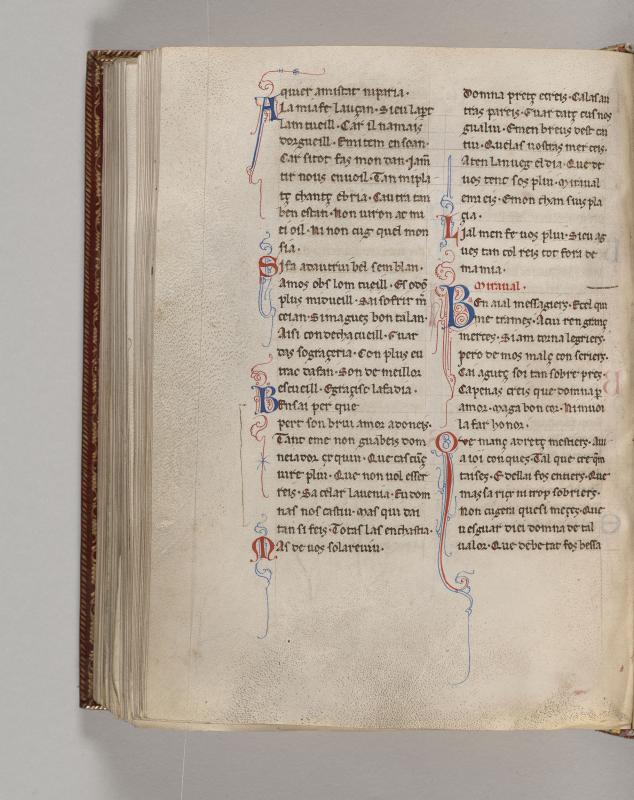 quier amistat ni paria.
A la mia fe lauçan. Sieu lapt
lam cueill. Car il namais
dorgueill. Emi tem en soan.
Car sitot fas mon dan. Jam
tir nous enuoil. Tan mi pla
tç chantç ebria. Cautra tan
ben estan. Non uiron ac mi
ei oil. Ni non cug quel mon
sia.
Sifa adautrui bel semblan.
Amos obs lom cueill. Et
plus mi dueill. Sai sofrir
ceian. Si magues bon talan.
Aisi con dechacueill. Euar
das sograçeria. Con plus eu
trac dafan. Son de meillor
escueill. Egraçisc lafadia.
Ben sai per que
pert son brui amor adoneis.
Tant eme non guabeis dom
neiador
iure pliu. Que non uol esser
reis. Sa celar lauenia. Eu dom
nas nos castiu. Mas qui dai
tan si feis. Totas las enchastia.
Mas de uos sol areuiu.
Domna pretç ecreis. Calas au
tras pareis. Euar datç cus nos
gualiu. Emen breus dest
tiu. Quelas uostras mer ceis.
Aten lan ueg eldia. Que de
uos tenc sos pliu. Miraual
emi eis. Emon chan sius pla
cia.
Lial men fe uos pliu. Sieu ag
ues tan col reis tot fora de
ma mia.
Miraual.
Ben aial messagiers. Ecel qui
me trames. Acui ren
merces. Siam torna legriers.
pero de mos malç con seriers.
Cai agutç soi tan sobre pres.
Ca penas creis que domna p
amor. Maga bon cor. Ni muoi
la far honor.
Ore manç adretç mestiers. Au
a ioi conques. Tal que cre
taises. E dellai fos entiers. Que
mas sa
non cugera quesi meçes. Que
u esguar dici domna de tal
ualor. Que debetat fos bessa